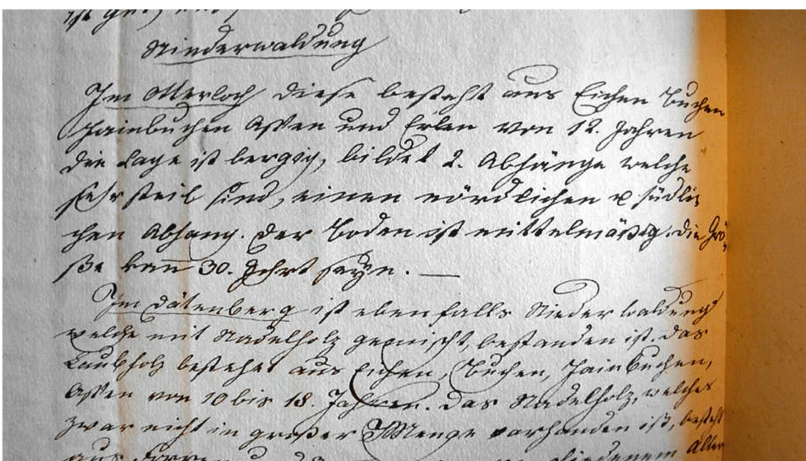 ist gut, und
Niederwaldung
Im Otterloch diese besteht aus Eichen Buchen
Hainbuchen Aspen und Erlen von 12. Jahren
die Lage ist bergig, bildet 2. Abhänge welche
sehr steil sind, einen nördlichen u südli
chen Abhang. Der Boden ist mittelmäßig. die Grö
ße kann 30. Jchrt seyn. —
Im Dätenberg ist ebenfalls Niederwaldung
welche mit Nadelholz gemischt bestanden ist. Das
Laubholz bestehet aus Eichen, Buchen, Hainbuchen,
Aspen von 10 bis 18. Jahren. Das Nadelholz, welches
zwar nicht in großer Menge vorhanden ist, besteht
aus Forren und Alter